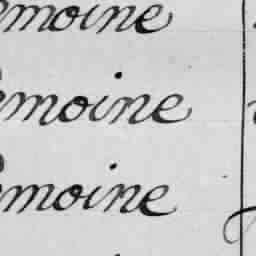 emoine
emoine
emoine